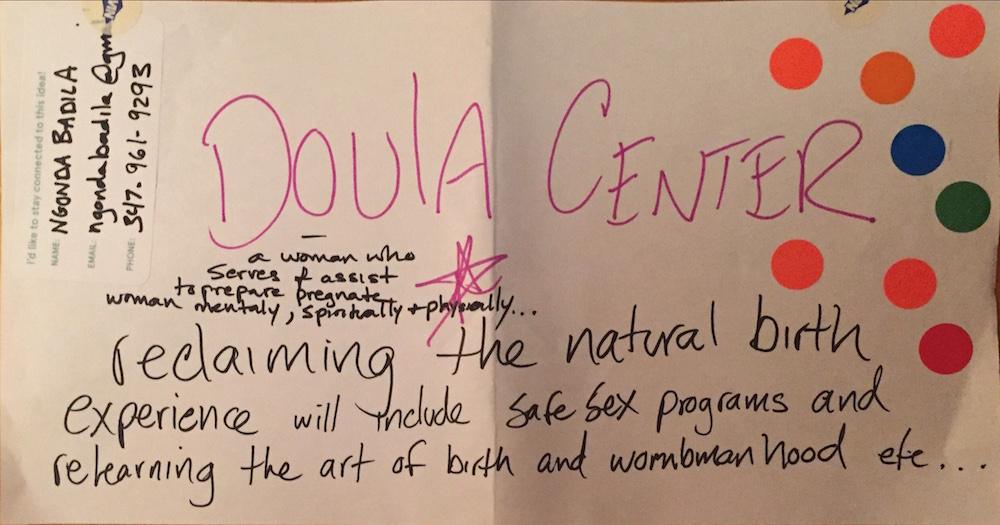 I'd like to stay connected to this idea!
NAME: NGONDA BADILA
EMAIL: ngondabadila@gm
PHONE: 347-961-9293
DOULA CENTER
a woman who
serves & assist
to prepare pregnate
woman mentaly, spiritually + physically...
reclaiming the natural birth
experience will include safe sex programs and
relearning the art of birth and wombmanhood etc...